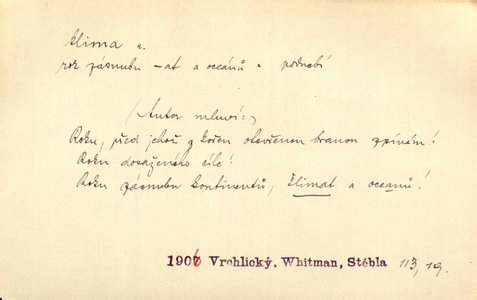 klima n.
rok zásnubu –at a oceánů = podnebí
(Autor mluví:)
Roku, před jehož z kořen otevřenou branou zpívám!
Roku dosaženého cíle!
Roku zásnubu kontinentů, klimat a oceánů!
1906 Vrchlický, Whitman, Stébla 113, 19.